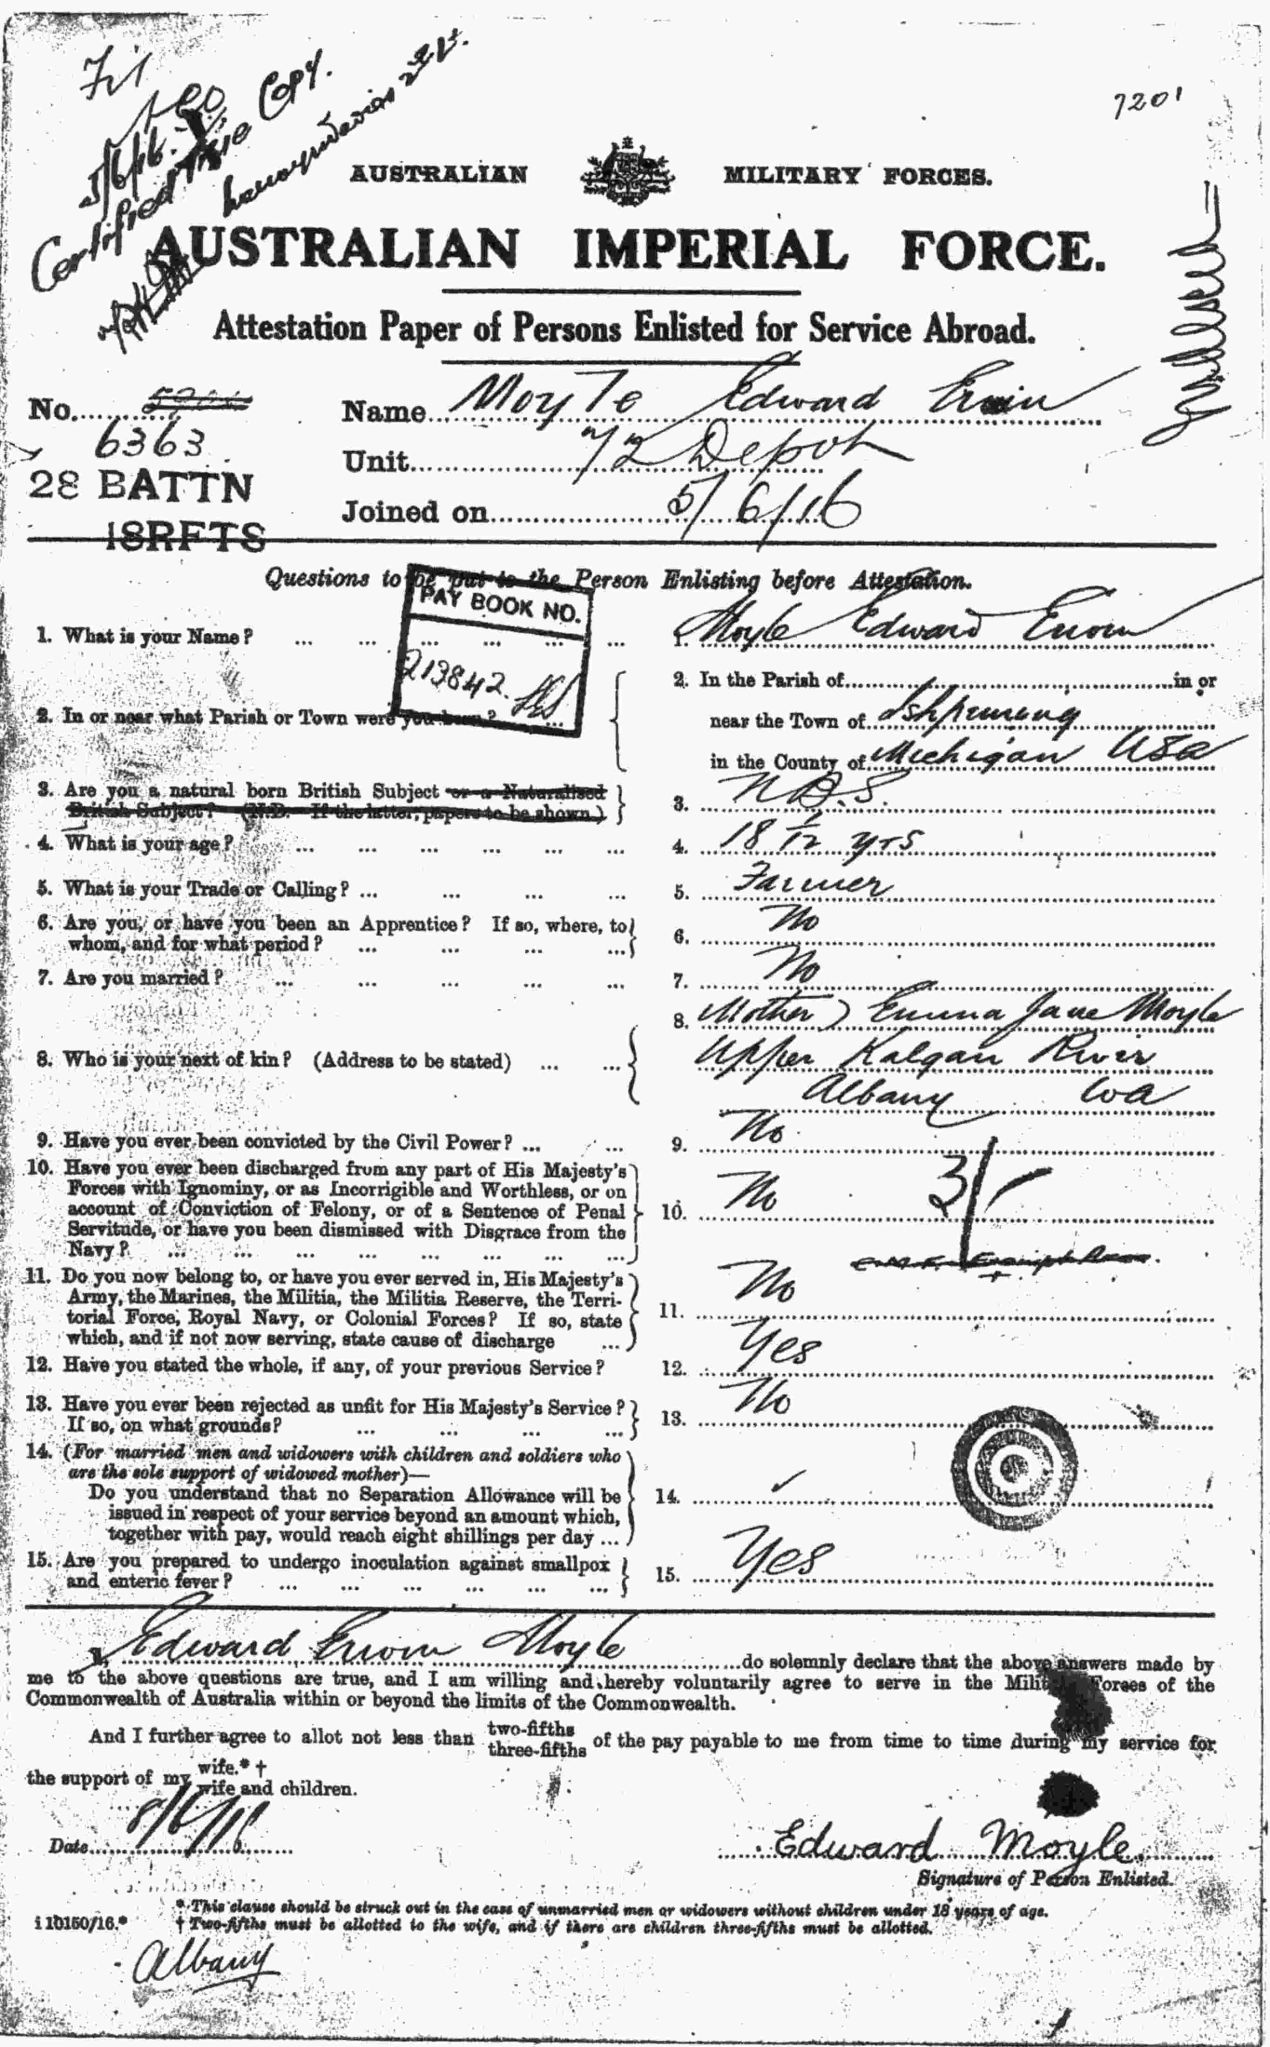 Fit
5/6/16
Certified True Copy.
7201
AUSTRALIAN MILITARY FORCES.
AUSTRALIAN IMPERIAL FORCE.
Attestation Paper of Persons Enlisted for Service Abroad.
No.
6363
28 BATTN
18RFTS
Name Moyle Edward Erwin
Unit 72 Depot
Joined on 5/6/16
Questions to be put to the Person Enlisting before Attestation.
PAY BOOK NO.
213842.
1. What is your Name? ... 1. Moyle Edward Erwin
2. In or near what Parish or Town were you born? ...
2. In the Parish of in or
near the Town of Ishpeming
in the County of Michigan USA
3. Are you a natural born British Subject or a Naturalised
British Subject? (N.B. If the latter, papers to be shown.) 3. N.B.S.
4. What is your age? ... 4. 18 1/12 yrs
5. What is your Trade or Calling? ... 5. Farmer
6. Are you, or have you been an Apprentice? If so, where, to
whom, and for what period? ... 6. No
7. Are you married? ... 7. No
8. Who is your next of kin? (Address to be stated) ...
8. Mother) Emma Jane Moyle
Upper Kalgan River
Albany WA
9. Have you ever been convicted by the Civil Power? ... 9. No
10. Have you ever been discharged from any part of His Majesty's
Forces with Ignominy, or as Incorrigible and Worthless, or on
account of Conviction of Felony, or of a Sentence of Penal
Servitude, or have you been dismissed with Disgrace from the
Navy? ... 10. No 3/-
11. Do you now belong to, or have you ever served in, His Majesty's
Army, the Marines, the Militia, the Militia Reserve, the Terri-
torial Force, Royal Navy, or Colonial Forces? If so, state
which, and if not now serving, state cause of discharge ... 11. No
12. Have you stated the whole, if any, of your previous Service? 12. Yes
13. Have you ever been rejected as unfit for His Majesty's Service?
If so, on what grounds? ... 13. No
14. (For married men and widowers with children and soldiers who
are the sole support of widowed mother)—
Do you understand that no Separation Allowance will be
issued in respect of your service beyond an amount which,
together with pay, would reach eight shillings per day ... 14. ✓
15. Are you prepared to undergo inoculation against smallpox
and enteric fever? ... 15. Yes
I, Edward Erwin Moyle do solemnly declare that the above answers made by
me to the above questions are true, and I am willing and hereby voluntarily agree to serve in the Military Forces of the
Commonwealth of Australia within or beyond the limits of the Commonwealth.
And I further agree to allot not less than two-fifths
three-fifths of the pay payable to me from time to time during my service for
the support of my wife.* †
wife and children.
Date 8/6/16
Edward Moyle
Signature of Person Enlisted.
* This clause should be struck out in the case of unmarried men or widowers without children under 18 years of age.
i 10150/16.* † Two-fifths must be allotted to the wife, and if there are children three-fifths must be allotted.
Albany